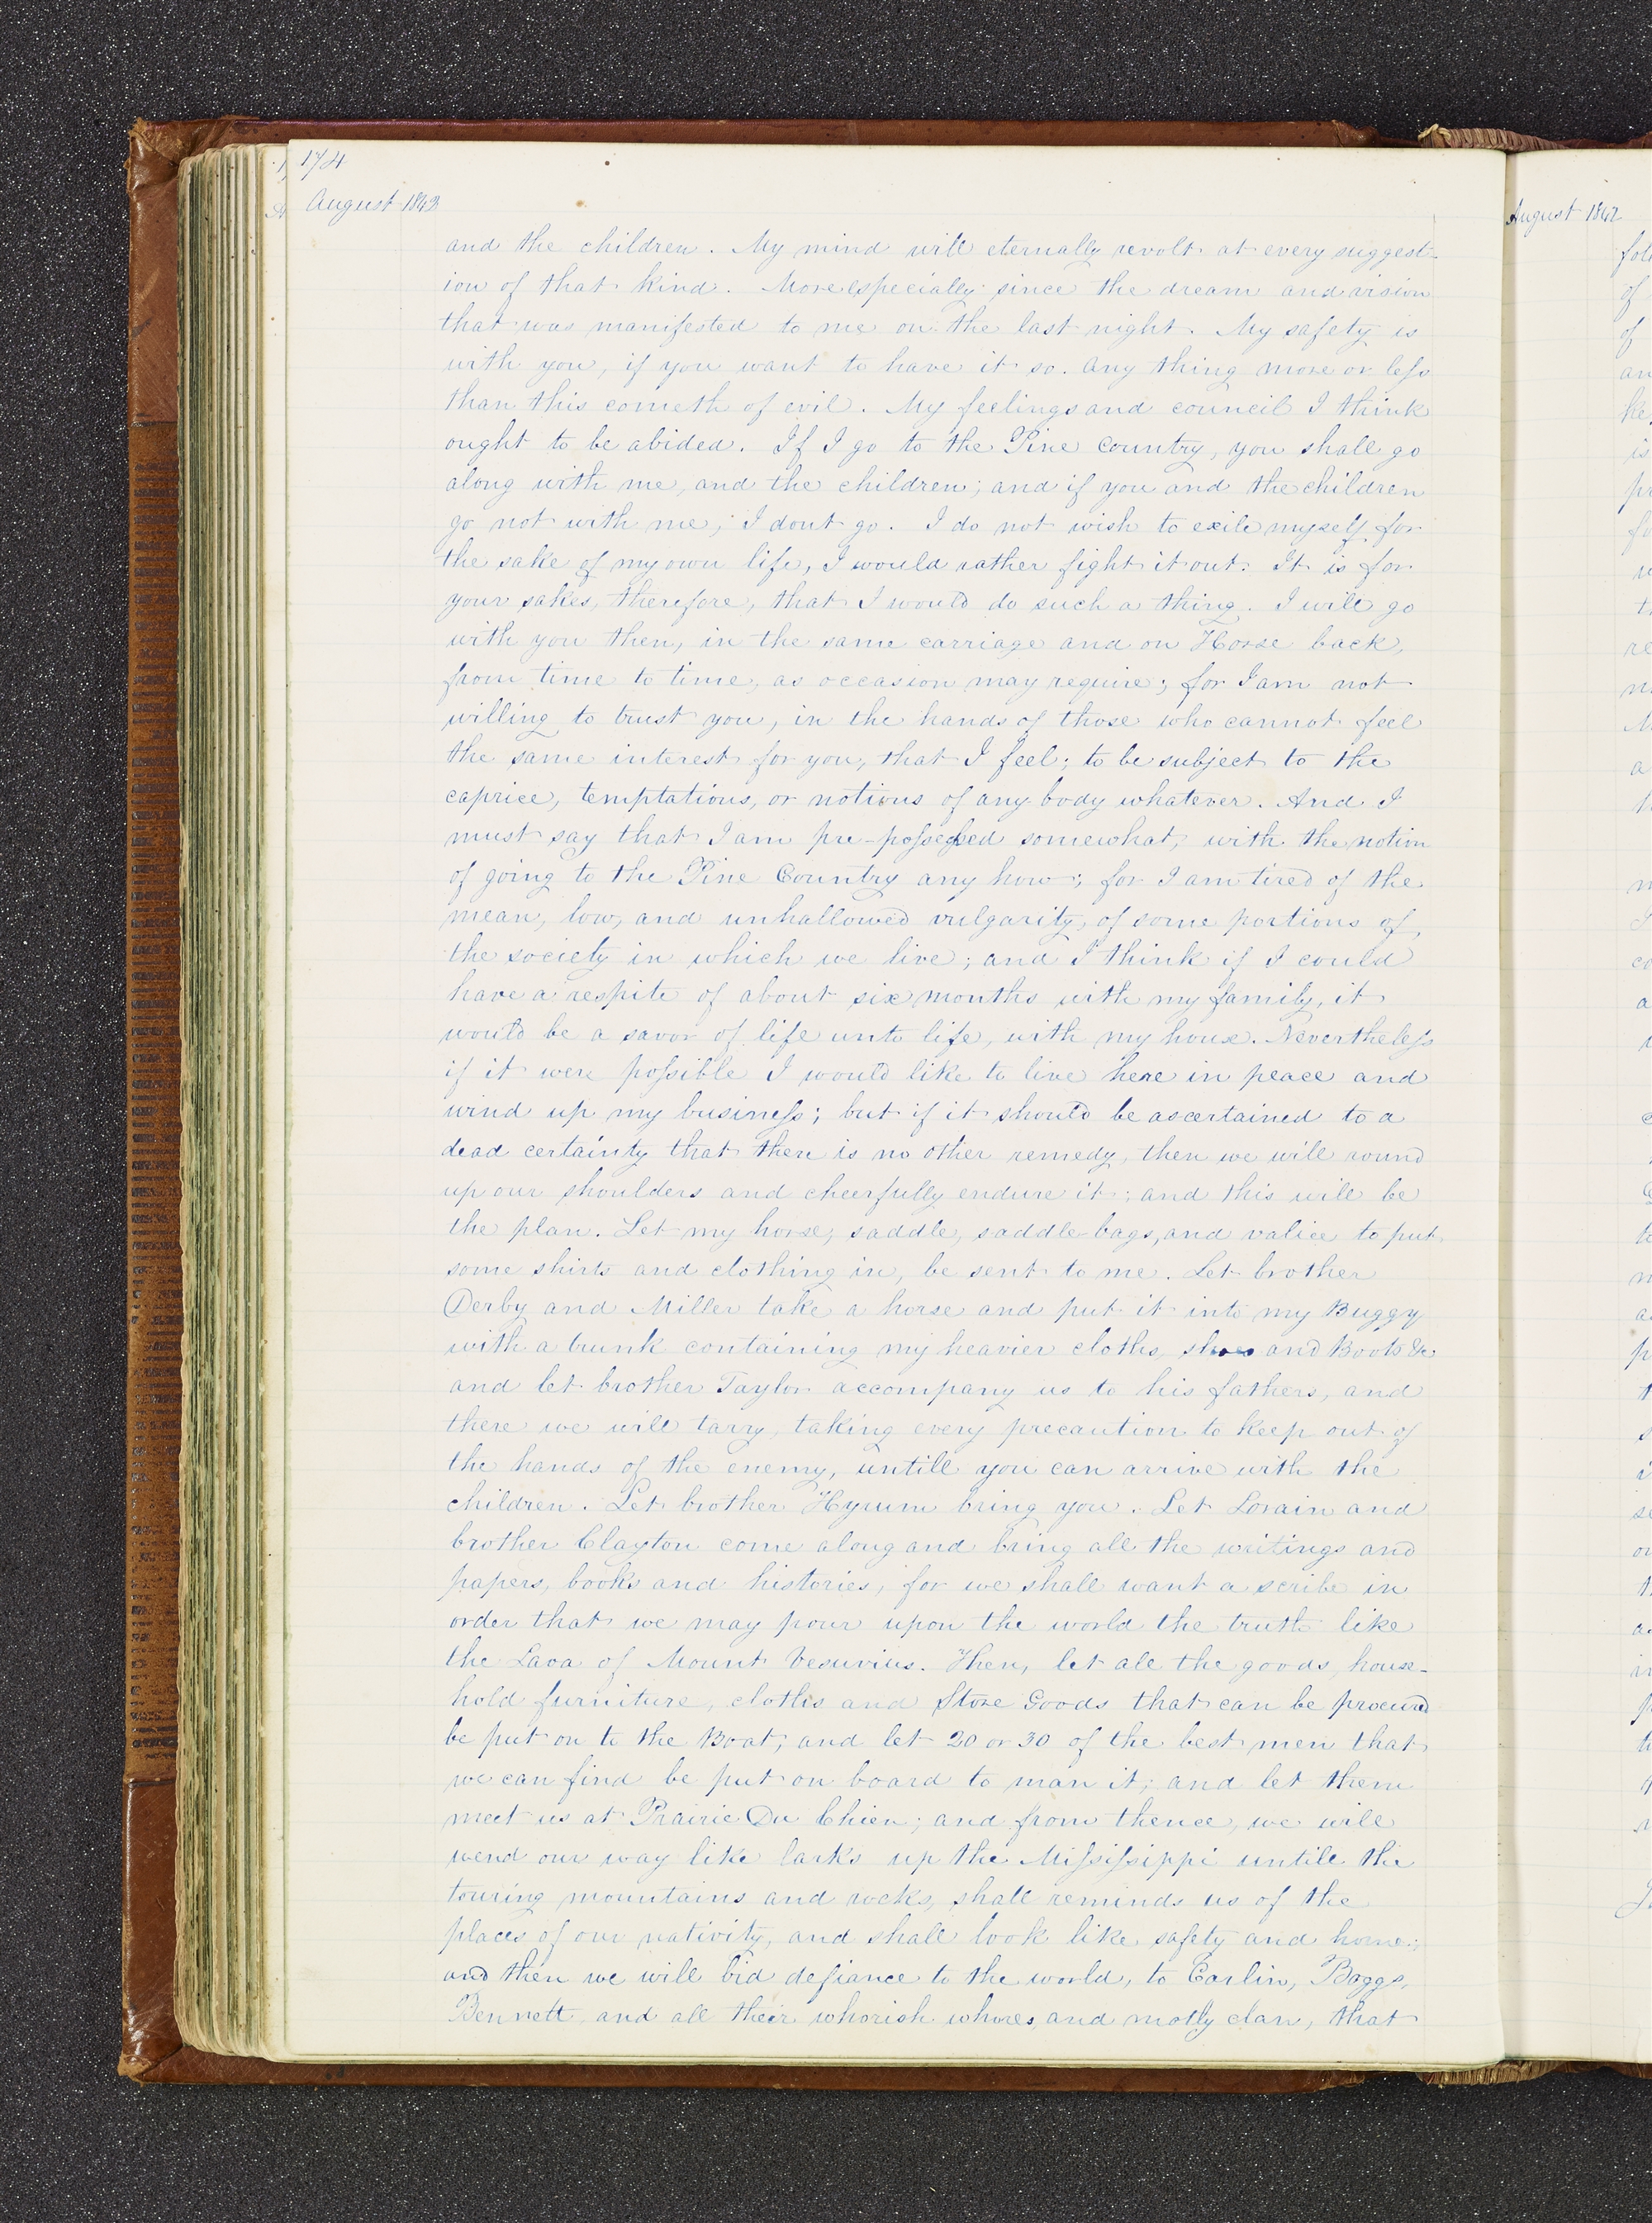 174
August 1842
and the children. My mind will eternally revolt at every suggest-
ion of that kind. More especially since the dream and vision
that was manifested to me on the last night. My safety is
with you, if you want to have it so. Any thing more or less
than this cometh of evil. My feelings and council I think
ought to be abided. If I go to the Pine country, you shall go
along with me, and the children; and if you and the children
go not with me, I dont go. I do not wish to exile myself for
the sake of my own life, I would rather fight it out. It is for
your sakes, therefore, that I would do such a thing. I will go
with you then, in the same carriage and on Horse back,
from time to time, as occasion may require; for I am not
willing to trust you, in the hands of those who cannot feel
the same interest for you, that I feel; to be subject to the
caprice, temptations, or notions of any body whatever. And I
must say that I am pre-possessed somewhat, with the notion
of going to the Pine Country any how; for I am tired of the
mean, low, and unhallowed vulgarity, of some portions of
the society in which we live; and I think if I could
have a respite of about six months with my family, it
would be a savor of life unto life, with my house. Nevertheless
if it were possible I would like to live here in peace and
wind up my business; but if it should be ascertained to a
dead certainty that there is no other remedy, then we will round
up our shoulders and cheerfully endure it; and this will be
the plan. Let my horse, saddle, saddle-bags, and valice to put
some shirts and clothing in, be sent to me. Let brother
Derby and Miller take a horse and put it into my Buggy
with a trunk containing my heavier cloths, shoes and Boots &c
and let brother Taylor accompany us to his fathers, and
there we will tarry, taking every precaution to keep out of
the hands of the enemy, untill you can arrive with the
children. Let brother Hyrum bring you. Let Lorain and
brother Clayton come along and bring all the writings and
papers, books and histories, for we shall want a scribe in
order that we may pour upon the world the truth like
the Lava of Mount Vesuvius. Then, let all the goods, house-
hold furniture, cloths and Store Goods that can be procured
be put on to the Boat, and let 20 or 30 of the best men that
we can find be put on board to man it, and let them
meet us at Prairie Du Chien; and from thence, we will
wend our way like larks up the Mississippi untill the
touring mountains and rocks, shall reminds us of the
places of our nativity, and shall look like safety and home;
and then we will bid defiance to the world, to Carlin, Boggs,
Bennett, and all their whorish whores, and motly clan, that
August 1842